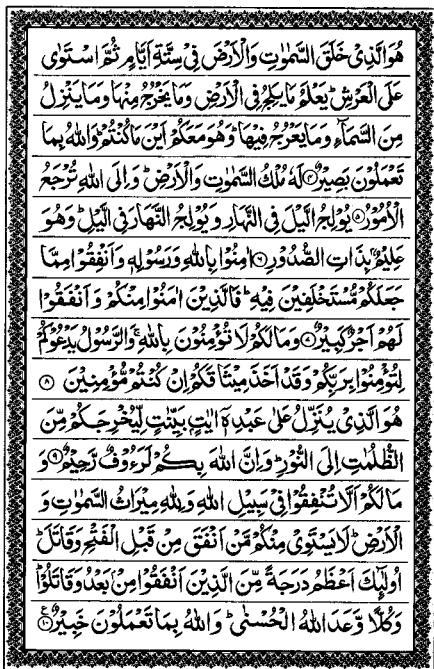 هُوَ الَّذِیْ خَلَقَ السَّمٰوٰتِ وَالْاَرْضَ فِیْ سِتَّةِ اَیَّامٍ ثُمَّ اسْتَوٰی
عَلَی الْعَرْشِ ؕ یَعْلَمُ مَا یَلِجُ فِی الْاَرْضِ وَمَا یَخْرُجُ مِنْهَا وَمَا یَنْزِلُ
مِنَ السَّمَآءِ وَمَا یَعْرُجُ فِیْهَا ؕ وَهُوَ مَعَكُمْ اَیْنَ مَا كُنْتُمْ ؕ وَاللّٰهُ بِمَا
تَعْمَلُوْنَ بَصِیْرٌ ﴿۴﴾ لَهٗ مُلْكُ السَّمٰوٰتِ وَالْاَرْضِ ؕ وَاِلَی اللّٰهِ تُرْجَعُ
الْاُمُوْرُ ﴿۵﴾ یُوْلِجُ الَّیْلَ فِی النَّهَارِ وَیُوْلِجُ النَّهَارَ فِی الَّیْلِ ؕ وَهُوَ
عَلِیْمٌۢ بِذَاتِ الصُّدُوْرِ ﴿۶﴾ اٰمِنُوْا بِاللّٰهِ وَرَسُوْلِهٖ وَاَنْفِقُوْا مِمَّا
جَعَلَكُمْ مُّسْتَخْلَفِیْنَ فِیْهِ ؕ فَالَّذِیْنَ اٰمَنُوْا مِنْكُمْ وَاَنْفَقُوْا
لَهُمْ اَجْرٌ كَبِیْرٌ ﴿۷﴾ وَمَا لَكُمْ لَا تُؤْمِنُوْنَ بِاللّٰهِ ۚ وَالرَّسُوْلُ یَدْعُوْكُمْ
لِتُؤْمِنُوْا بِرَبِّكُمْ وَقَدْ اَخَذَ مِیْثَاقَكُمْ اِنْ كُنْتُمْ مُّؤْمِنِیْنَ ﴿۸﴾
هُوَ الَّذِیْ یُنَزِّلُ عَلٰی عَبْدِهٖۤ اٰیٰتٍۭ بَیِّنٰتٍ لِّیُخْرِجَكُمْ مِّنَ
الظُّلُمٰتِ اِلَی النُّوْرِ ؕ وَاِنَّ اللّٰهَ بِكُمْ لَرَءُوْفٌ رَّحِیْمٌ ﴿۹﴾ وَ
مَا لَكُمْ اَلَّا تُنْفِقُوْا فِیْ سَبِیْلِ اللّٰهِ وَلِلّٰهِ مِیْرَاثُ السَّمٰوٰتِ وَ
الْاَرْضِ ؕ لَا یَسْتَوِیْ مِنْكُمْ مَّنْ اَنْفَقَ مِنْ قَبْلِ الْفَتْحِ وَقَاتَلَ ؕ
اُولٰٓئِكَ اَعْظَمُ دَرَجَةً مِّنَ الَّذِیْنَ اَنْفَقُوْا مِنْۢ بَعْدُ وَقَاتَلُوْا ؕ
وَكُلًّا وَّعَدَ اللّٰهُ الْحُسْنٰی ؕ وَاللّٰهُ بِمَا تَعْمَلُوْنَ خَبِیْرٌ ﴿۱۰﴾